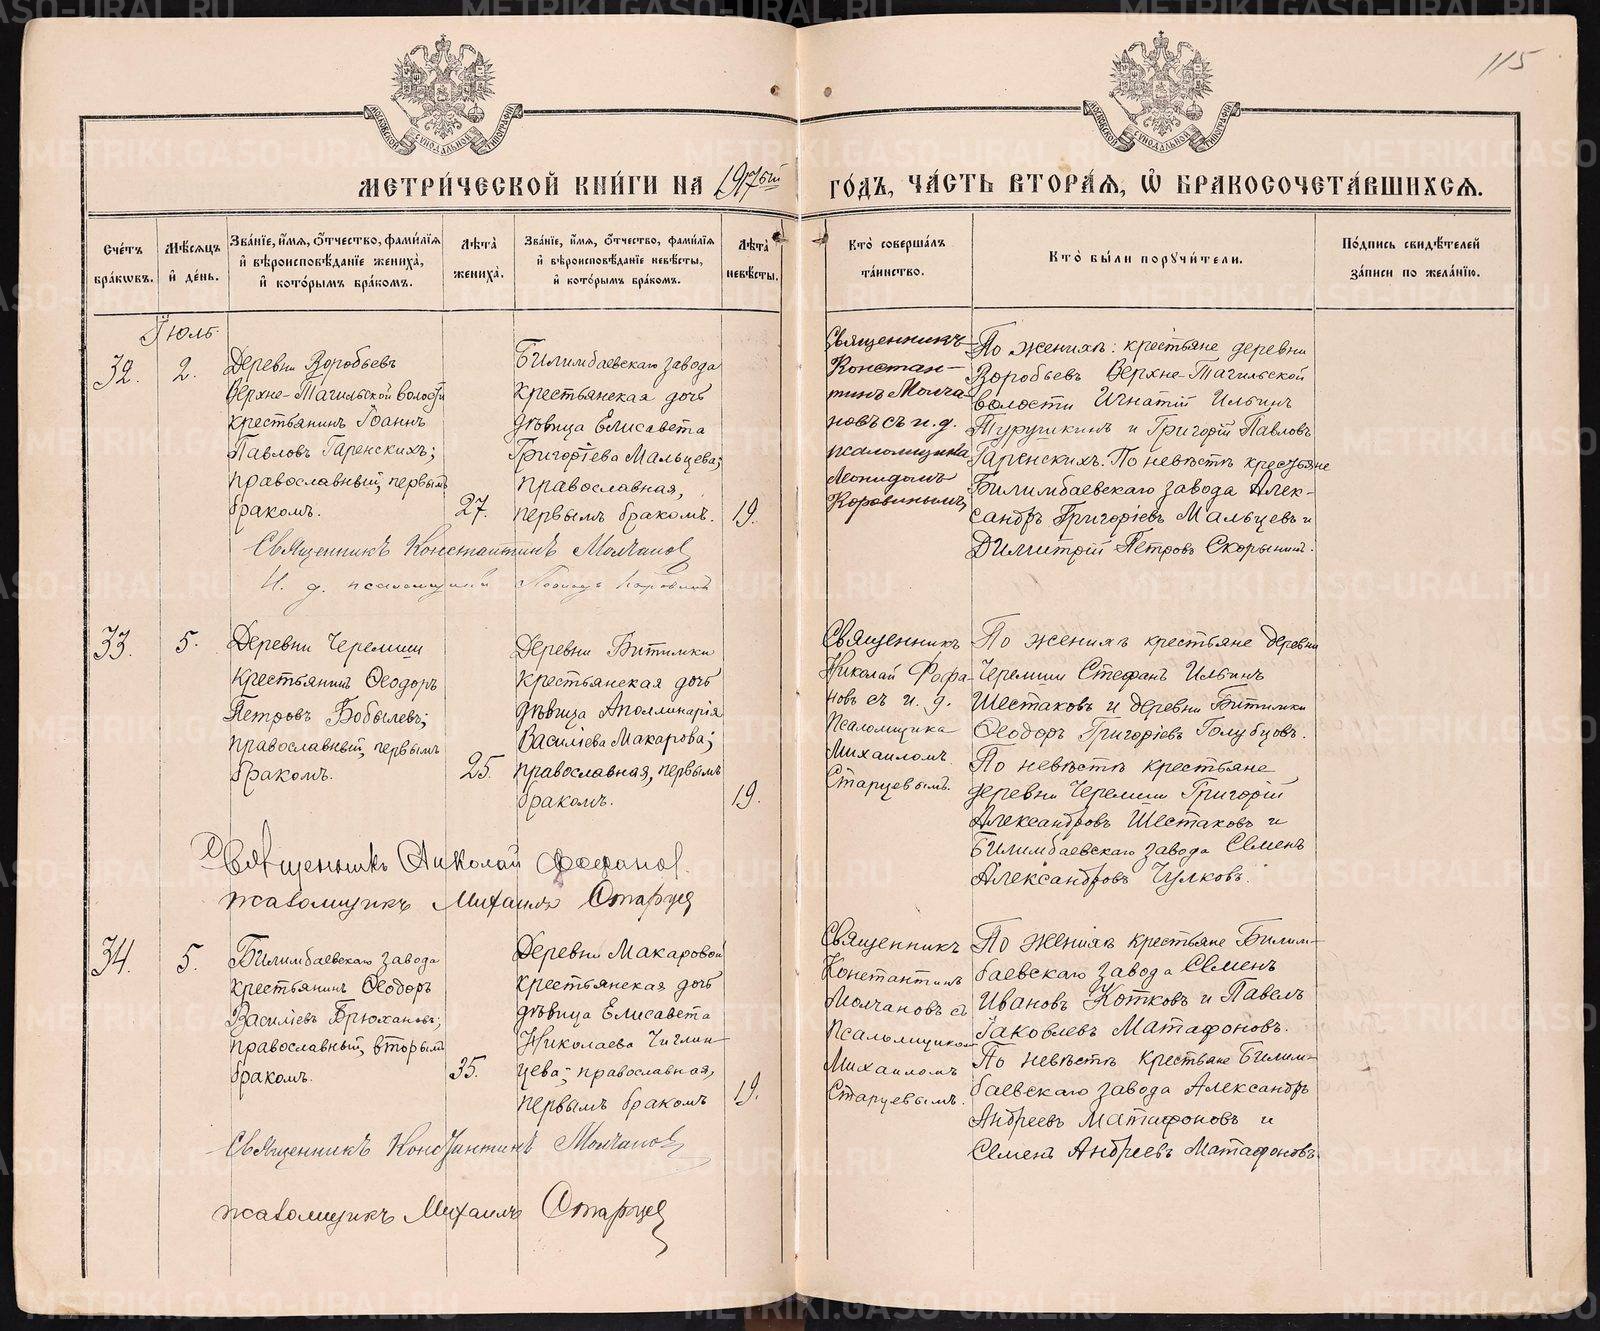 115
МОСКОВСКОЙ СѴНОДАЛЬНОЙ ТИПОГРАФІИ
МОСКОВСКОЙ СѴНОДАЛЬНОЙ ТИПОГРАФІИ
МЕТРИ́ЧЕСКОЙ КНИ́ГИ НА 1917 ый ГО́ДЪ, ЧА́СТЬ ВТОРА́Ѧ, Ѽ БРАКОСОЧЕТА́ВШИХСѦ.
Сче́тъ бра́кѡвъ.
Мѣ́сѧцъ и҆ де́нь.
Зва́нїе, и҆́мѧ, ѻ҆́тчество, фами́лїѧ и҆ вѣроисповѣ́данїе жениха̀, и҆ кото́рымъ бра́комъ.
Лѣ́та жениха̀.
Зва́нїе, и҆́мѧ, ѻ҆́тчество, фами́лїѧ и҆ вѣроисповѣ́данїе невѣ́сты, и҆ кото́рымъ бра́комъ.
Лѣ́та невѣ́сты.
Кто̀ соверша́лъ та́инство.
Кто̀ бы́ли поручи́тели.
По́дпись свидѣ́телей за́писи по жела́нїю.
Іюль
32.
2.
Деревни Воробьевъ
Верхне-Тагильской волости
крестьянинъ Іоаннъ
Павловъ Гаренскихъ;
православный, первымъ
бракомъ.
27.
Билимбаевскаго завода
крестьянская дочь
дѣвица Елисавета
Григоріева Мальцева;
православная,
первымъ бракомъ.
19.
Священникъ
Констан-
тинъ Молча-
новъ съ и. д.
псаломщика
Леонидомъ
Коровинымъ
По женихѣ: крестьяне деревни
Воробьевъ Верхне-Тагильской
волости Игнатій Ильинъ
Турушкинъ и Григорій Павловъ
Гаренскихъ. По невѣстѣ крестьяне
Билимбаевскаго завода Алек-
сандръ Григоріевъ Мальцевъ и
Димитрій Петровъ Скорынинъ.
Священникъ Константинъ Молчановъ
И. д. псаломщика Леонидъ Коровинъ
33.
5.
Деревни Черемши
крестьянинъ Ѳеодоръ
Петровъ Бобылевъ;
православный, первымъ
бракомъ.
25.
Деревни Битимки
крестьянская дочь
дѣвица Аполлинарія
Василіева Макарова;
православная, первымъ
бракомъ.
19.
Священникъ
Николай Фофа-
новъ съ и. д.
Псаломщика
Михаиломъ
Старцевымъ.
По женихѣ крестьяне деревни
Черемши Стефанъ Ильинъ
Шестаковъ и деревни Битимки
Ѳеодоръ Григоріевъ Голубцовъ.
По невѣстѣ крестьяне
деревни Черемши Григорій
Александровъ Шестаковъ и
Билимбаевскаго завода Семенъ
Александровъ Чулковъ.
Священникъ Николай Фофановъ.
псаломщикъ Михаилъ Старцев
34.
5.
Билимбаевскаго завода
крестьянинъ Ѳеодоръ
Василіевъ Брюхановъ;
православный, вторымъ
бракомъ.
35.
Деревни Макаровой
крестьянская дочь
дѣвица Елисавета
Николаева Чиглин-
цева; православная,
первымъ бракомъ
19.
Священникъ
Константинъ
Молчановъ съ
Псаломщикомъ
Михаиломъ
Старцевымъ.
По женихѣ крестьяне Билим-
баевскаго завода Семенъ
Ивановъ Котковъ и Павелъ
Іаковлевъ Матафоновъ.
По невѣстѣ крестьяне Билим-
баевскаго завода Александръ
Андреевъ Матафоновъ и
Семенъ Андреевъ Матафоновъ.
Священникъ Константинъ Молчановъ
псаломщикъ Михаилъ Старцев
METRIKI.GASO-URAL.RU